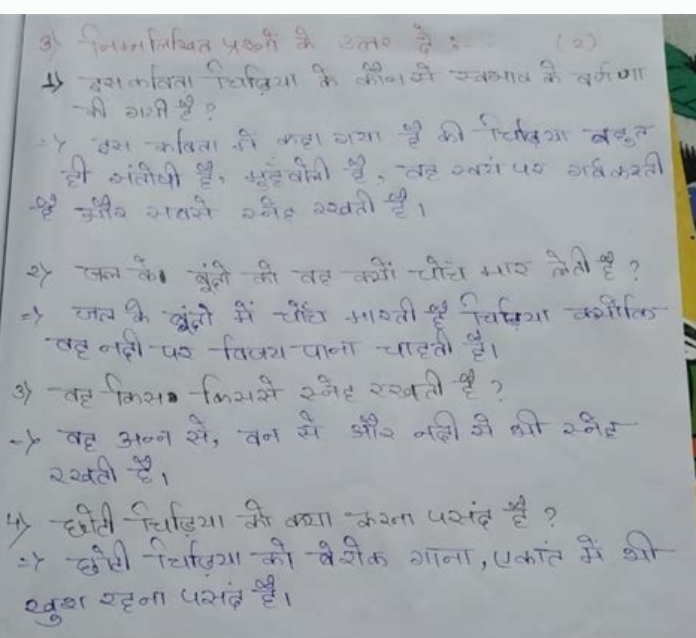 3) निम्नलिखित प्रश्नों के उत्तर दें : (2)
1) इस कविता चिड़िया के कौन से स्वभाव के वर्णणा
की गयी है ?
=> इस कविता में कहा गया है की चिड़िया बहुत
ही संतोषी है, मुहँबोली है, वह स्वयं पर गर्व करती
है और सबसे स्नेह रखती है।
2) जल के बूंदो को वह क्यों चोंच मार लेती है ?
=> जल के बूंदो में चोंच मारती है चिड़िया क्योंकि
वह नदी पर विजय पाना चाहती है।
3) वह किस किससे स्नेह रखती है ?
-> वह अन्न से, वन से और नदी से भी स्नेह
रखती है।
4) छोटी चिड़िया को क्या करना पसंद है ?
=> छोटी चिड़िया को बेरोक गाना, एकांत में भी
खुश रहना पसंद है।